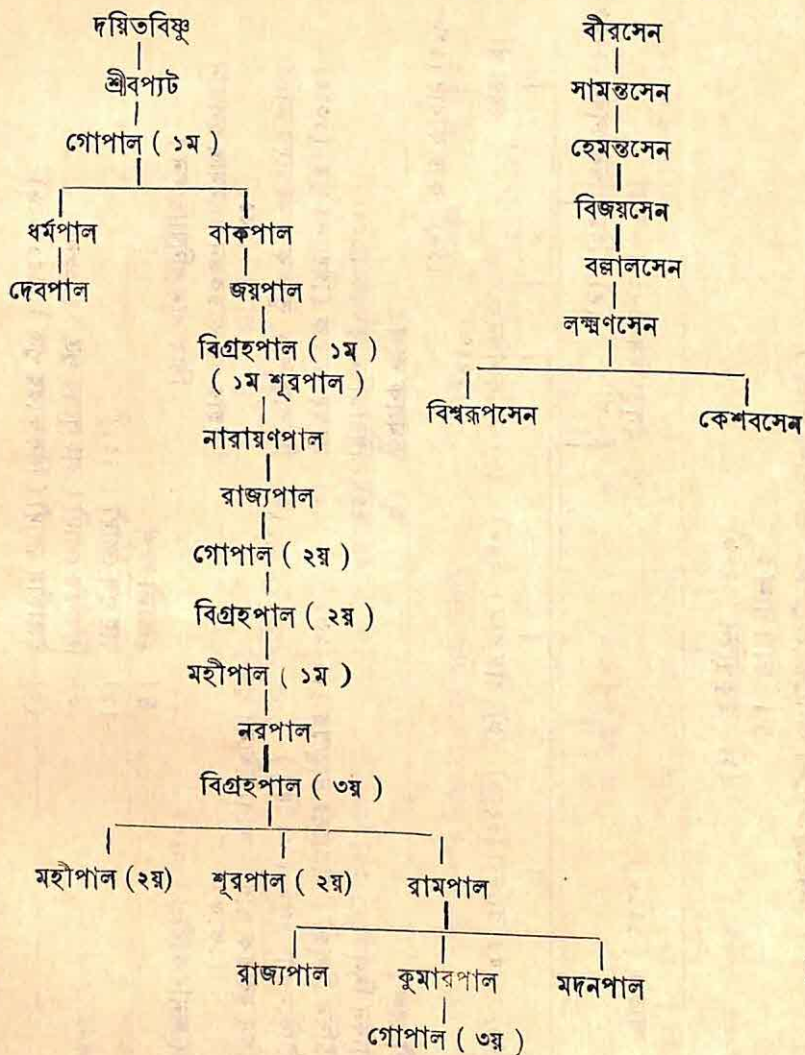 দয়িতবিষ্ণু
শ্রীবপ্যট
গোপাল ( ১ম )
ধর্মপাল বাকপাল
দেবপাল জয়পাল
বিগ্রহপাল ( ১ম )
( ১ম শূরপাল )
নারায়ণপাল
রাজ্যপাল
গোপাল ( ২য় )
বিগ্রহপাল ( ২য় )
মহীপাল ( ১ম )
নরপাল
বিগ্রহপাল ( ৩য় )
মহীপাল (২য়) শূরপাল ( ২য়) রামপাল
রাজ্যপাল কুমারপাল মদনপাল
গোপাল ( ৩য় )
বীরসেন
সামন্তসেন
হেমন্তসেন
বিজয়সেন
বল্লালসেন
লক্ষ্মণসেন
বিশ্বরূপসেন কেশবসেন